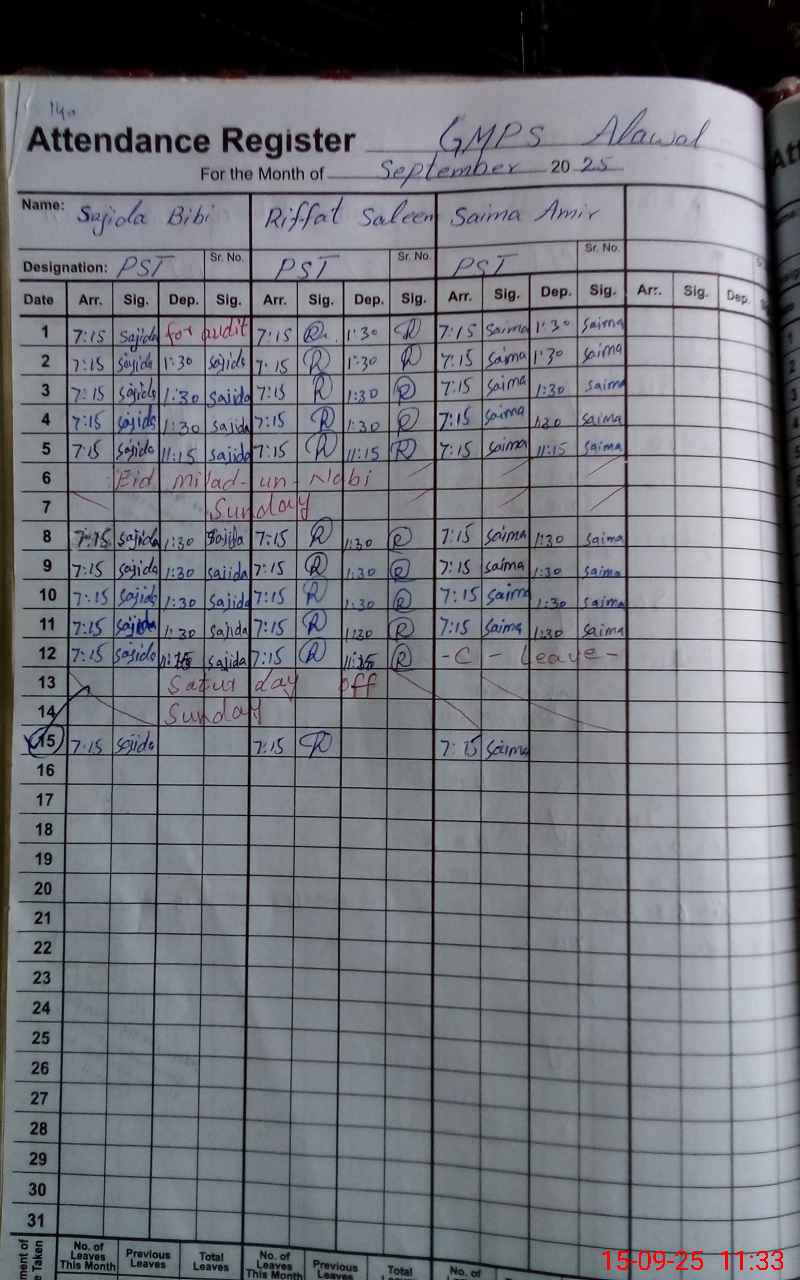 Attendance Register GMPS Alawal
For the Month of September 20 25
Name: Sajida Bibi Riffat Saleem Saima Amir
Sr. No. Sr. No. Sr. No.
Designation: PST PST PST
Date Arr. Sig. Dep. Sig. Arr. Sig. Dep. Sig. Arr. Sig. Dep. Sig. Arr. Sig. Dep.
1 7:15 Sajida for audit 7:15 R 1:30 R 7:15 saima 1:30 saima
2 7:15 sajida 1:30 sajida 7:15 R 1:30 R 7:15 saima 1:30 saima
3 7:15 sajida 1:30 sajida 7:15 R 1:30 R 7:15 saima 1:30 saima
4 7:15 sajida 1:30 sajida 7:15 R 1:30 R 7:15 saima 1:30 saima
5 7:15 sajida 11:15 sajida 7:15 R 11:15 R 7:15 saima 11:15 saima
6 Eid milad-un-Nabi
7 Sunday
8 7:15 sajida 1:30 sajida 7:15 R 1:30 R 7:15 saima 1:30 saima
9 7:15 sajida 1:30 sajida 7:15 R 1:30 R 7:15 saima 1:30 saima
10 7:15 sajida 1:30 sajida 7:15 R 1:30 R 7:15 saima 1:30 saima
11 7:15 sajida 1:30 sajida 7:15 R 1:30 R 7:15 saima 1:30 saima
12 7:15 sajida 11:15 sajida 7:15 R 11:15 R - C - Leave -
13 Saturday off
14 Sunday
15 7:15 sajida 7:15 R 7:15 saima
16
17
18
19
20
21
22
23
24
25
26
27
28
29
30
31
No. of Leaves This Month Previous Leaves Total Leaves No. of Leaves This Month Previous Leaves Total Leaves No. of
15-09-25 11:33